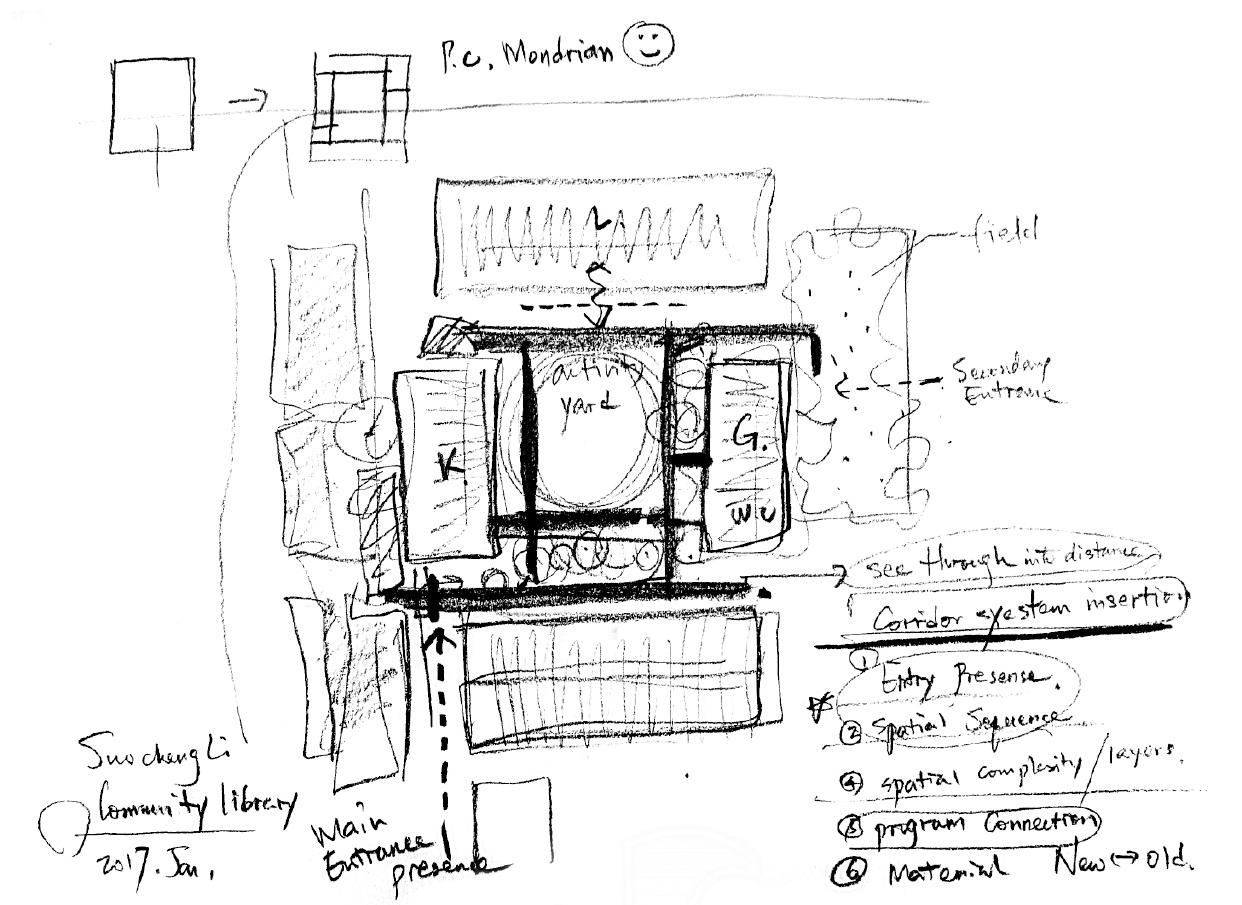 P.C. Mondrian
L
field
activity
yard
Secondary
Entrance
K
G.
WC
see through into distance
Corridor system insertion
① Entry Presense.
② Spatial Sequence
④ spatial complexity / layers.
⑤ program Connection
⑥ Material New ↔ old.
Suochengli
Community library
2017. Jan.
Main
Entrance
presence